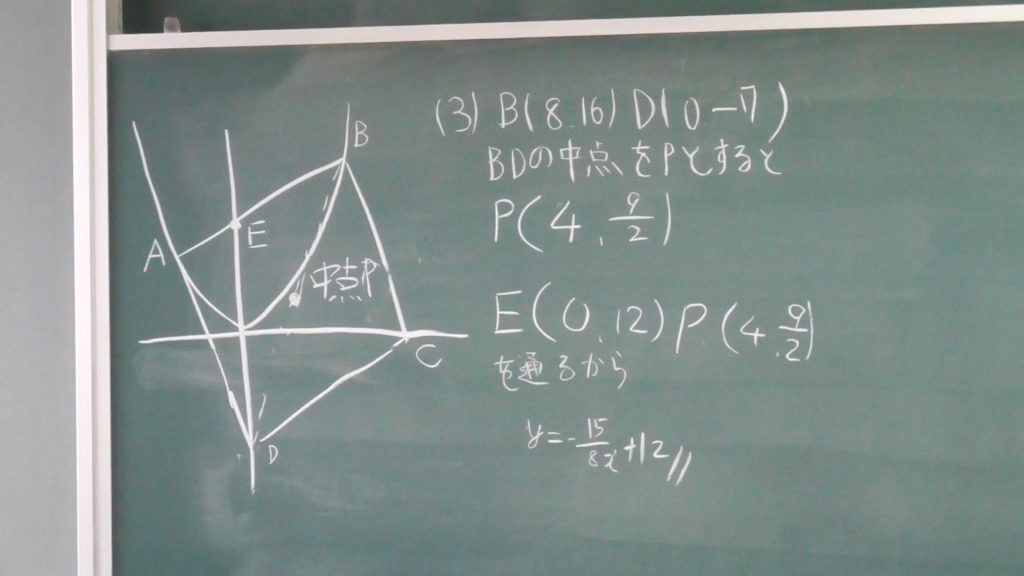 (3) B(8.16) D(0-7)
BDの中点をPとすると
P(4, 9/2)
E(0,12) P(4, 9/2)
を通るから
y=-15/8x+12
B
E
A
中点P
C
D